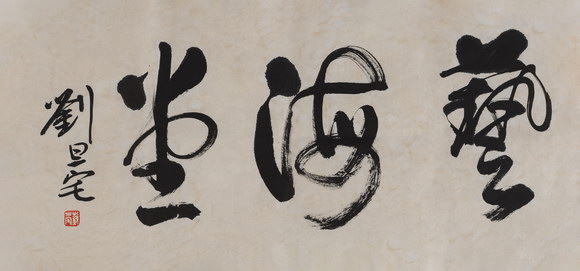 藝海堂
劉旦宅